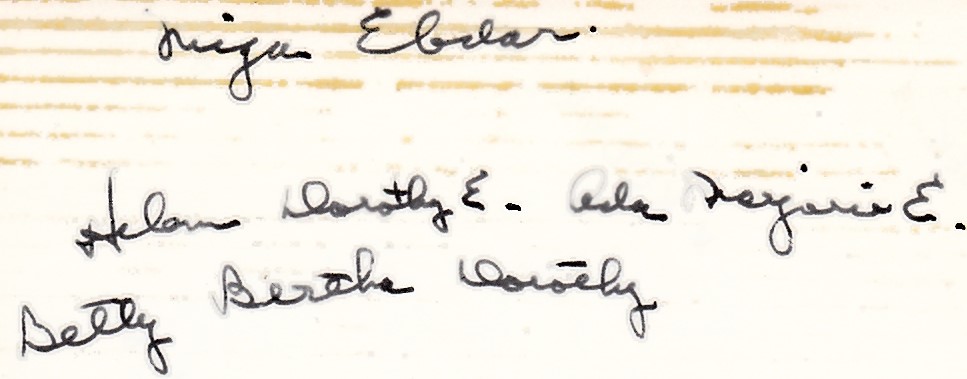 Ebdar.
Helen Dorothy E. Ada Marjorie E.
Betty Bertha Dorothy